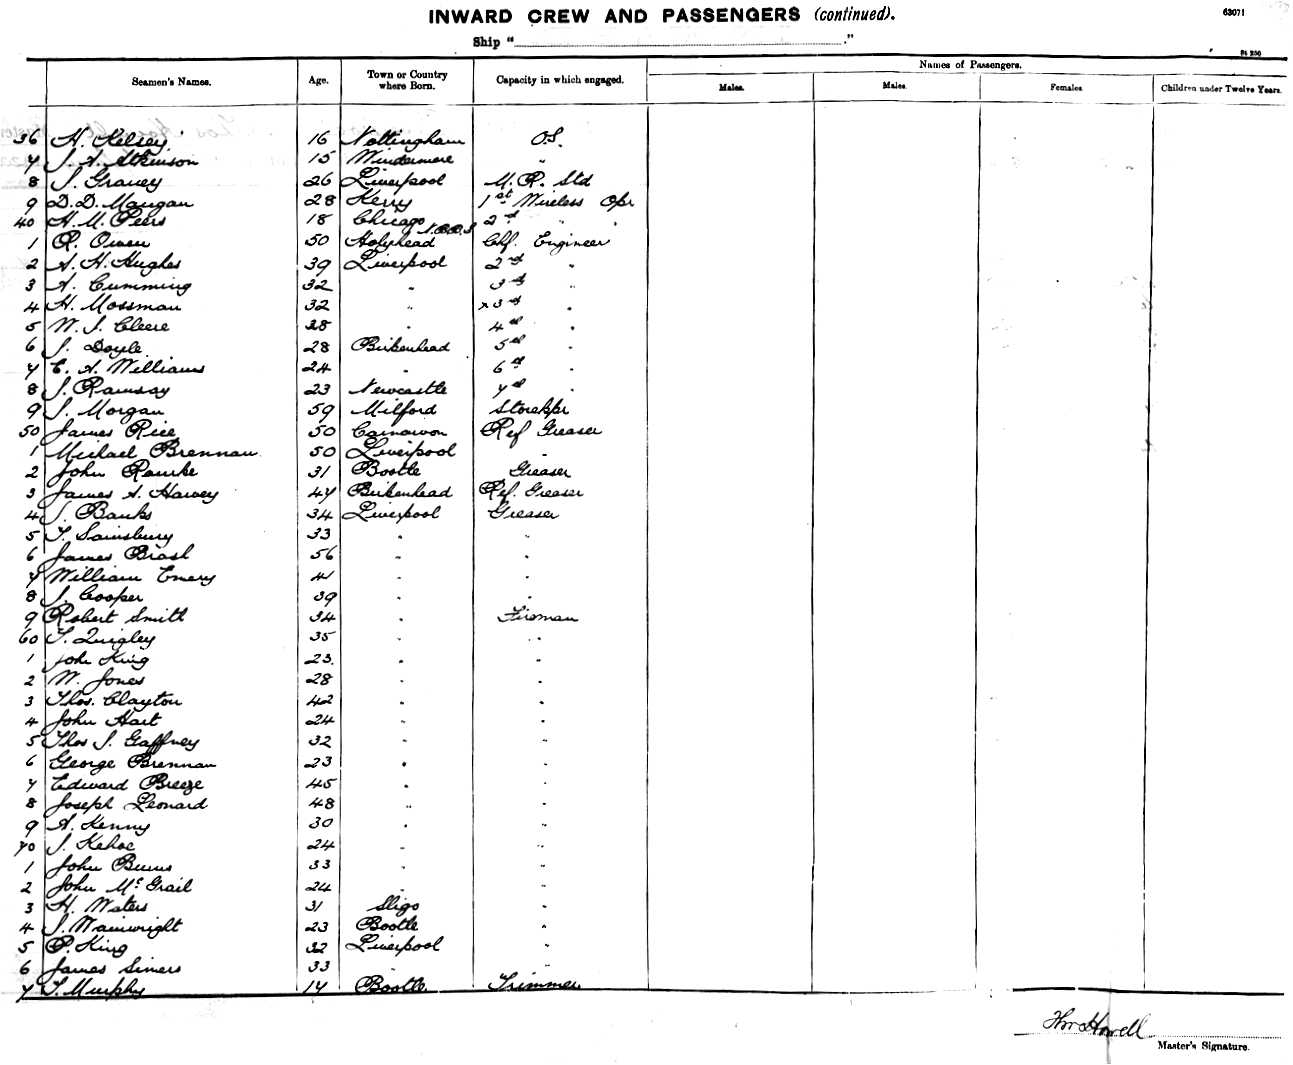 INWARD CREW AND PASSENGERS (continued).
63071
Ship "
."
Names of Passengers.
Seamen's Names. Age. Town or Country where Born. Capacity in which engaged. Males. Males. Females Children under Twelve Years.
36 H. Kelsey 16 Nottingham O.S.
7 J. A. Atkinson 15 Windermere "
8 J. Gravey 26 Liverpool M. R. Std
9 D. D. Mangan 28 Kerry 1st Wireless Opr
40 H. M. Peers 18 Chicago 2nd " "
1 R. Owen 50 Holyhead Chf. Engineer
2 A. H. Hughes 39 Liverpool 2nd "
3 A. Cumming 32 " 3rd "
4 H. Mossman 32 " x 3rd "
5 W. J. Cleere 28 " 4th "
6 J. Doyle 28 Birkenhead 5th "
7 E. A. Williams 24 " 6th "
8 J. Ramsay 23 Newcastle 7th "
9 J. Morgan 59 Milford Storekpr
50 James Rice 50 Carnarvon Ref Greaser
1 Michael Brennan 50 Liverpool "
2 John Rourke 31 Bootle Greaser
3 James A. Harvey 47 Birkenhead Ref. Greaser
4 J. Banks 34 Liverpool Greaser
5 T. Sainsbury 33 " "
6 James Brash 56 " "
7 William Emery 41 " "
8 J. Cooper 39 " "
9 Robert Smith 34 " Fireman
60 T. Quigley 35 " "
1 John King 23 " "
2 W. Jones 28 " "
3 Thos. Clayton 42 " "
4 John Hart 24 " "
5 Thos J. Gaffney 32 " "
6 George Brennan 23 " "
7 Edward Breeze 45 " "
8 Joseph Leonard 48 " "
9 A. Kenny 30 " "
70 J. Kehoe 24 " "
1 John Burns 33 " "
2 John McGrail 24 " "
3 H. Waters 31 Sligo "
4 J. Wainwright 23 Bootle "
5 P. King 32 Liverpool "
6 James Simers 33 " "
7 T. Murphy 17 Bootle Trimmer
Howell
Master's Signature.